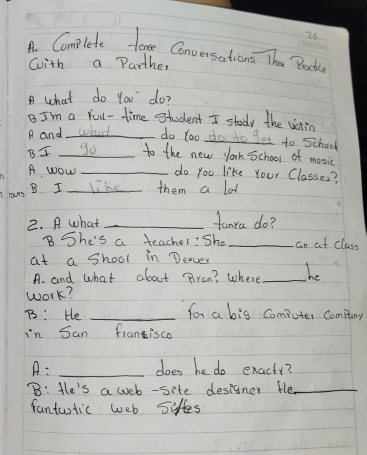 26
A. Complete these Conversations Then Practice
with a Parther
A what do You do?
B I'm a full-time Student I study the violin
A and what do You do to get to School
B I go to the new york School of mosic
A. wow do you like Your Classes?
B. I like them a lot
2. A what tanya do?
B She's a teacher: She an art class
at a Shool in Denver
A. and what about Ryan? where he
work?
B: He for a big Computer Company
in San francisco
A: does he do exacty?
B: He's a web-site designer He
fantastic web Sites